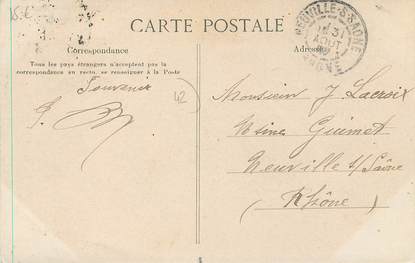 CARTE POSTALE
Correspondance
Tous les pays étrangers n'acceptent pas la
correspondance au recto, se renseigner à la Poste
Souvenir
42
Adresse
NEUVILLE-S-SAÔNE
31
AOUT
RHÔNE
Monsieur J Lacroix
Usine Guimet
Neuville s/ Saône
(Rhône)